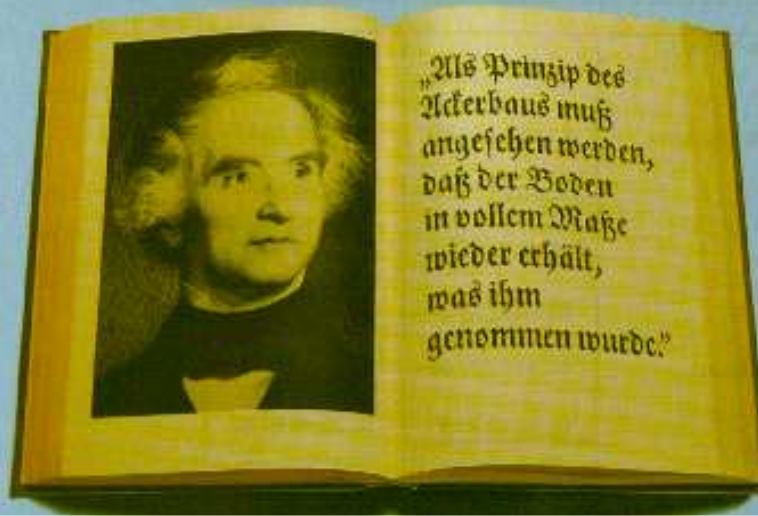 „Als Prinzip des
Ackerbaus muß
angesehen werden,
daß der Boden
in vollem Maße
wieder erhält,
was ihm
genommen wurde.“